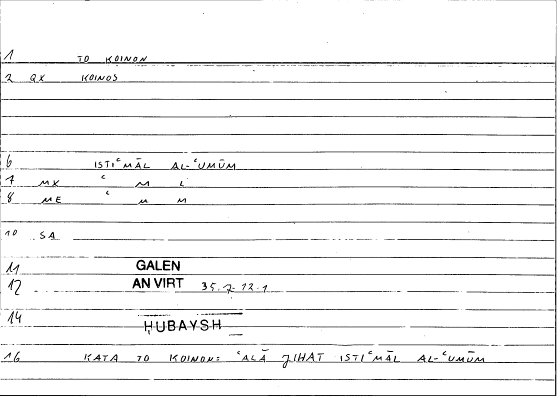 1 TO KOINON
2 QX KOINOS
6 ISTIʿMĀL AL-ʿUMŪM
7 MX ʿ M L
8 ME ʿ M M
10 SA
11 GALEN
12 AN VIRT 35.7-12.1
14 ḤUBAYSH
16 KATA TO KOINON: ʿALĀ JIHAT ISTIʿMĀL AL-ʿUMŪM